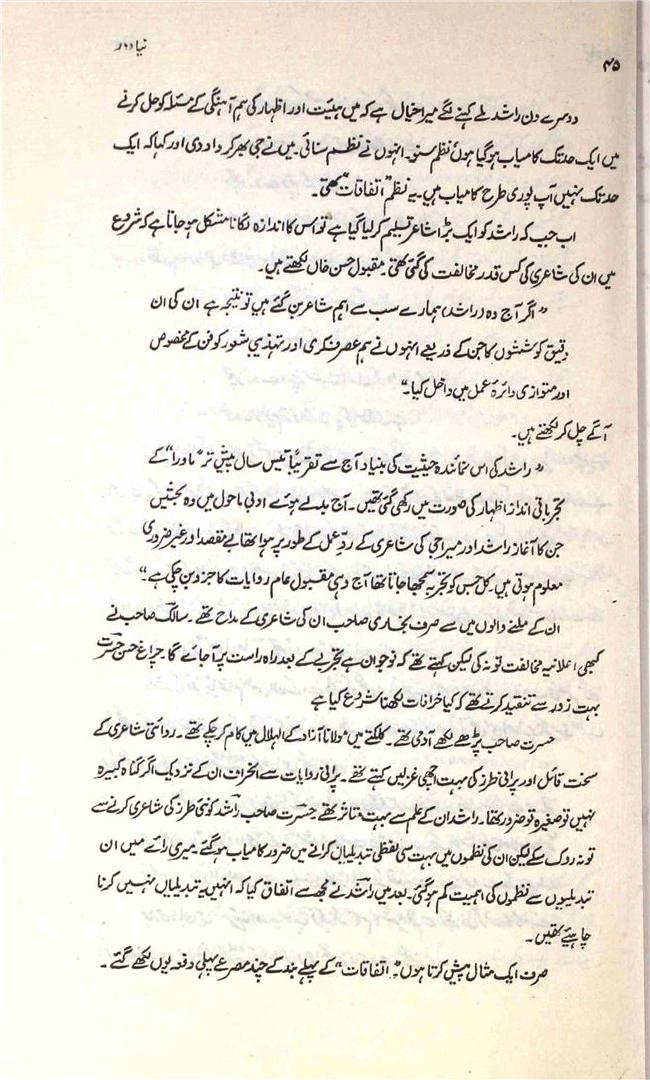 نیا دور
۴۵
دوسرے دن راشد ملے کہنے لگے میرا خیال ہے کہ میں ہیئت اور اظہار کی ہم آہنگی کے مسئلہ کو حل کرنے
میں ایک حد تک کامیاب ہو گیا ہوں نظم سنو۔ انہوں نے نظم سنائی۔ میں نے جی بھر کر داد دی اور کہا کہ ایک
حد تک نہیں آپ پوری طرح کامیاب ہیں۔ یہ نظم "اتفاقات" تھی۔
اب جب کہ راشد کو ایک بڑا شاعر تسلیم کر لیا گیا ہے تو اس کا اندازہ لگانا مشکل ہو جاتا ہے کہ شروع
میں ان کی شاعری کی کس قدر مخالفت کی گئی تھی۔ مقبول حسن خاں لکھتے ہیں۔
"اگر آج وہ (راشد) ہمارے سب سے اہم شاعر بن گئے ہیں تو نتیجہ ہے ان کی ان
دقیق کوششوں کا جن کے ذریعے انہوں نے ہم عصر فکری اور تہذیبی شعور کو فن کے مخصوص
اور متوازی دائرۂ عمل میں داخل کیا۔"
آگے چل کر لکھتے ہیں۔
"راشد کی اس نمائندہ حیثیت کی بنیاد آج سے تقریباً تیس سال پیش تر "ماورا" کے
تجرباتی انداز اظہار کی صورت میں رکھی گئی تھیں۔ آج بدلے ہوئے ادبی ماحول میں وہ بحثیں
جن کا آغاز راشد اور میراجی کی شاعری کے ردِّ عمل کے طور پر ہوا تھا بے مقصد اور غیر ضروری
معلوم ہوتی ہیں۔ کل جس کو تجربہ سمجھا جاتا تھا آج وہی مقبول عام روایات کا جزو بن چکی ہے۔"
ان کے ملنے والوں میں سے صرف بخاری صاحب ان کی شاعری کے مداح تھے۔ سالک صاحب نے
کبھی اعلانیہ مخالفت تو نہ کی لیکن کہتے تھے کہ نوجوان ہے تجربے کے بعد راہ راست پر آ جائے گا۔ چراغ حسن حسرت
بہت زور سے تنقید کرتے تھے کہ کیا خرافات لکھنا شروع کیا ہے
حسرت صاحب پڑھے لکھے آدمی تھے۔ کلکتے میں مولانا آزاد کے الہلال میں کام کر چکے تھے۔ روائتی شاعری کے
سخت قائل اور پرانی طرز کی بہت اچھی غزلیں کہتے تھے۔ پرانی روایات سے انحراف ان کے نزدیک اگر گناہ کبیرہ
نہیں تو صغیرہ تو ضرور تھا۔ راشد ان کے علم سے بہت متاثر تھے۔ حسرت صاحب راشد کو نئی طرز کی شاعری کرنے سے
تو نہ روک سکے لیکن ان کی نظموں میں بہت سی لفظی تبدیلیاں کرانے میں ضرور کامیاب ہو گئے۔ میری رائے میں ان
تبدیلیوں سے نظموں کی اہمیت کم ہو گئی۔ بعد میں راشد نے مجھ سے اتفاق کیا کہ انہیں یہ تبدیلیاں نہیں کرنا
چاہیئے تھیں۔
صرف ایک مثال پیش کرتا ہوں۔ "اتفاقات" کے پہلے بند کے چند مصرعے پہلی دفعہ یوں لکھے گئے۔